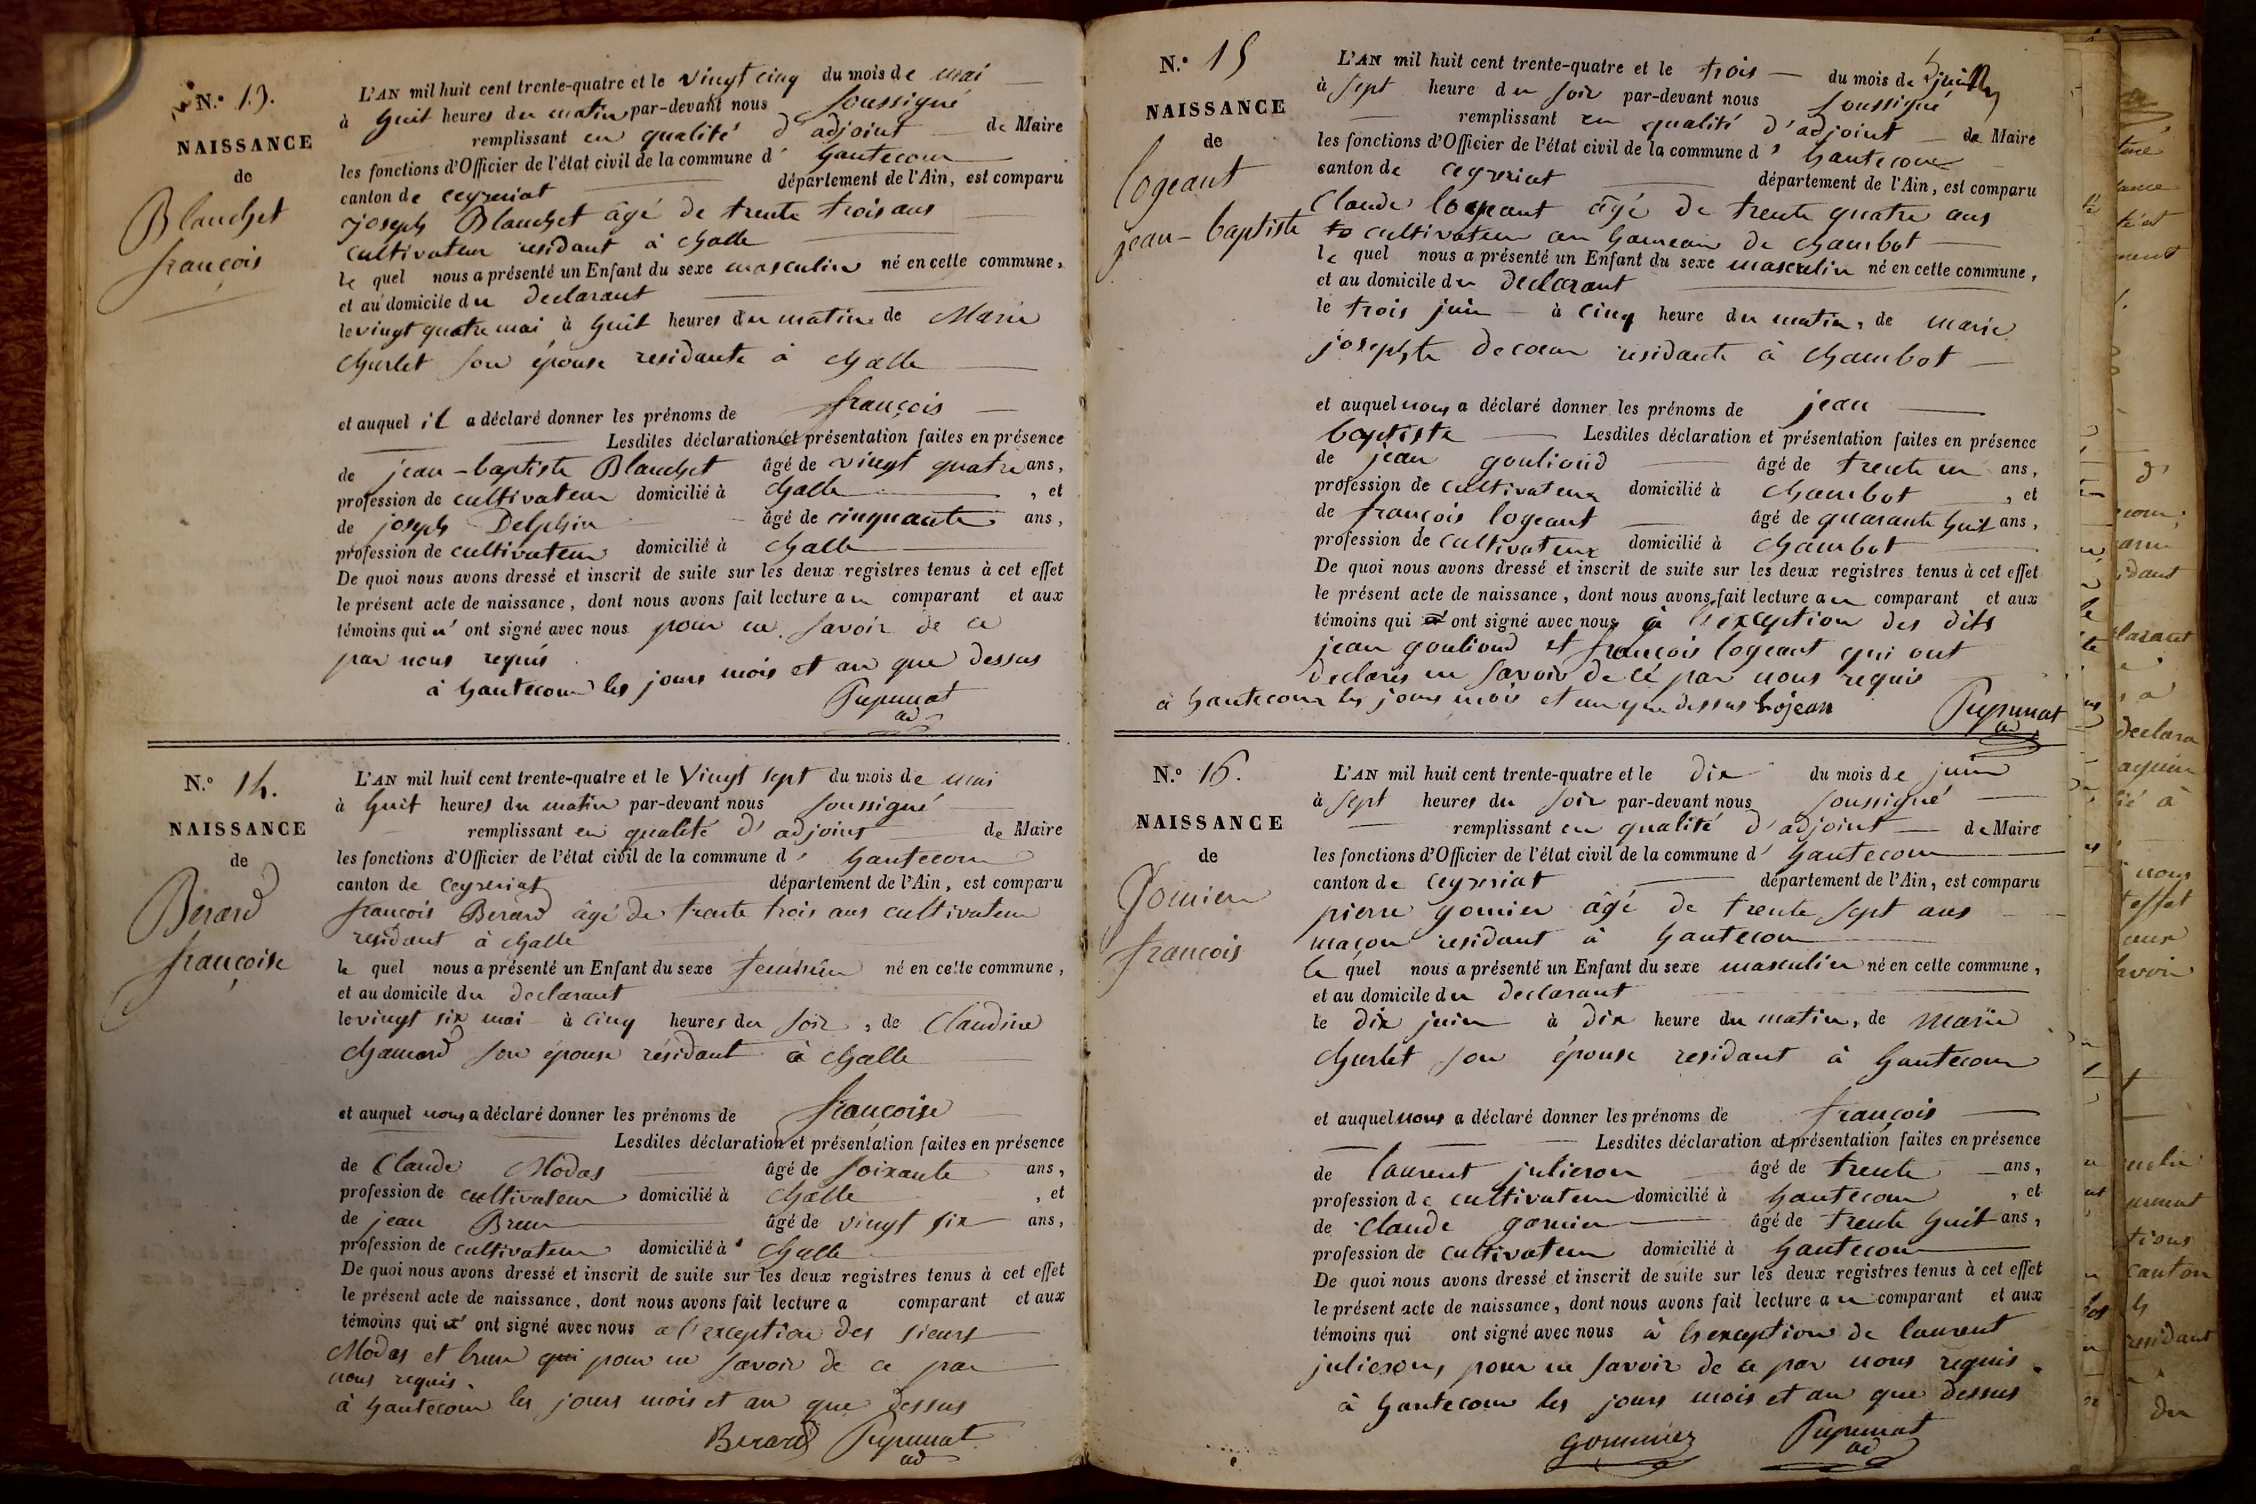 N.° 13.
NAISSANCE
de
Blanchet
françois
L'AN mil huit cent trente-quatre et le vingt cinq du mois de mai
à huit heures du matin par-devant nous soussigné
remplissant en qualité d'adjoint de Maire
les fonctions d'Officier de l'état civil de la commune d' hautecour
canton de ceyzeriat département de l'Ain, est comparu
joseph Blanchet âgé de trente trois ans
cultivateur residant à challe
le quel nous a présenté un Enfant du sexe masculin né en cette commune,
et au domicile du declarant
le vingt quatre mai à huit heures du matin de Marie
churlet son épouse residante à challe
et auquel il a déclaré donner les prénoms de françois
Lesdites déclaration et présentation faites en présence
de jean-baptiste Blanchet âgé de vingt quatre ans,
profession de cultivateur domicilié à challe, et
de joseph Delphin âgé de cinquante ans,
profession de cultivateur domicilié à challe
De quoi nous avons dressé et inscrit de suite sur les deux registres tenus à cet effet
le présent acte de naissance, dont nous avons fait lecture au comparant et aux
témoins qui n' ont signé avec nous pour ne savoir de ce
par nous requis
à hautecour les jours mois et an que dessus
ad
N.° 14.
NAISSANCE
de
Berard
françoise
L'AN mil huit cent trente-quatre et le vingt sept du mois de mai
à huit heures du matin par-devant nous soussigné
remplissant en qualité d'adjoint de Maire
les fonctions d'Officier de l'état civil de la commune d' hautecour
canton de ceyzeriat département de l'Ain, est comparu
françois Berard âgé de trente trois ans cultivateur
residant à challe
le quel nous a présenté un Enfant du sexe feminin né en cette commune,
et au domicile du declarant
le vingt six mai à cinq heures du soir, de Claudine
chamard son épouse résidant à challe
et auquel nous a déclaré donner les prénoms de françoise
Lesdites déclaration et présentation faites en présence
de Claude Modas âgé de soixante ans,
profession de cultivateur domicilié à challe, et
de jean Brun âgé de vingt six ans,
profession de cultivateur domicilié à challe
De quoi nous avons dressé et inscrit de suite sur les deux registres tenus à cet effet
le présent acte de naissance, dont nous avons fait lecture a comparant et aux
témoins qui ont signé avec nous a l'exception des sieurs
Modas et brun qui pour ne savoir de ce par
nous requis.
à hautecour les jours mois et an que dessus
Berard
ad
N.° 15
NAISSANCE
de
logeant
jean-baptiste
L'AN mil huit cent trente-quatre et le trois du mois de juin
à sept heure du soir par-devant nous soussigné
remplissant en qualité d'adjoint de Maire
les fonctions d'Officier de l'état civil de la commune d' hautecour
canton de ceyzeriat département de l'Ain, est comparu
Claude logeant âgé de trente quatre ans
cultivateur au hameau de chambot
le quel nous a présenté un Enfant du sexe masculin né en cette commune,
et au domicile du declarant
le trois juin à cinq heure du matin, de marie
josephte decoeur residante à chambot
et auquel nous a déclaré donner les prénoms de jean
baptiste Lesdites déclaration et présentation faites en présence
de jean goulioud âgé de trente un ans,
profession de cultivateur domicilié à chambot, et
de françois logeant âgé de quarante huit ans,
profession de cultivateur domicilié à chambot
De quoi nous avons dressé et inscrit de suite sur les deux registres tenus à cet effet
le présent acte de naissance, dont nous avons fait lecture au comparant et aux
témoins qui ont signé avec nous à l'exception des dits
jean goulioud et françois logeant qui ont
declarés ne savoir de cé par nous requis
à hautecour les jours mois et an que dessus Lojean
ad
N.° 16.
NAISSANCE
de
Gomier
françois
L'AN mil huit cent trente-quatre et le dix du mois de juin
à sept heures du soir par-devant nous soussigné
remplissant en qualité d'adjoint de Maire
les fonctions d'Officier de l'état civil de la commune d' hautecour
canton de ceyzeriat département de l'Ain, est comparu
pierre gomier âgé de trente sept ans
maçon residant à hautecour
le quel nous a présenté un Enfant du sexe masculin né en cette commune,
et au domicile du declarant
le dix juin à dix heure du matin, de marie
churlet son épouse residant à hautecour
et auquel nous a déclaré donner les prénoms de françois
Lesdites déclaration et présentation faites en présence
de laurent julieron âgé de trente ans,
profession de cultivateur domicilié à hautecour, et
de Claude gomier âgé de trente huit ans,
profession de cultivateur domicilié à hautecour
De quoi nous avons dressé et inscrit de suite sur les deux registres tenus à cet effet
le présent acte de naissance, dont nous avons fait lecture au comparant et aux
témoins qui ont signé avec nous à l'exception de laurent
julieron, pour ne savoir de ce par nous requis.
à hautecour les jours mois et an que dessus
ad